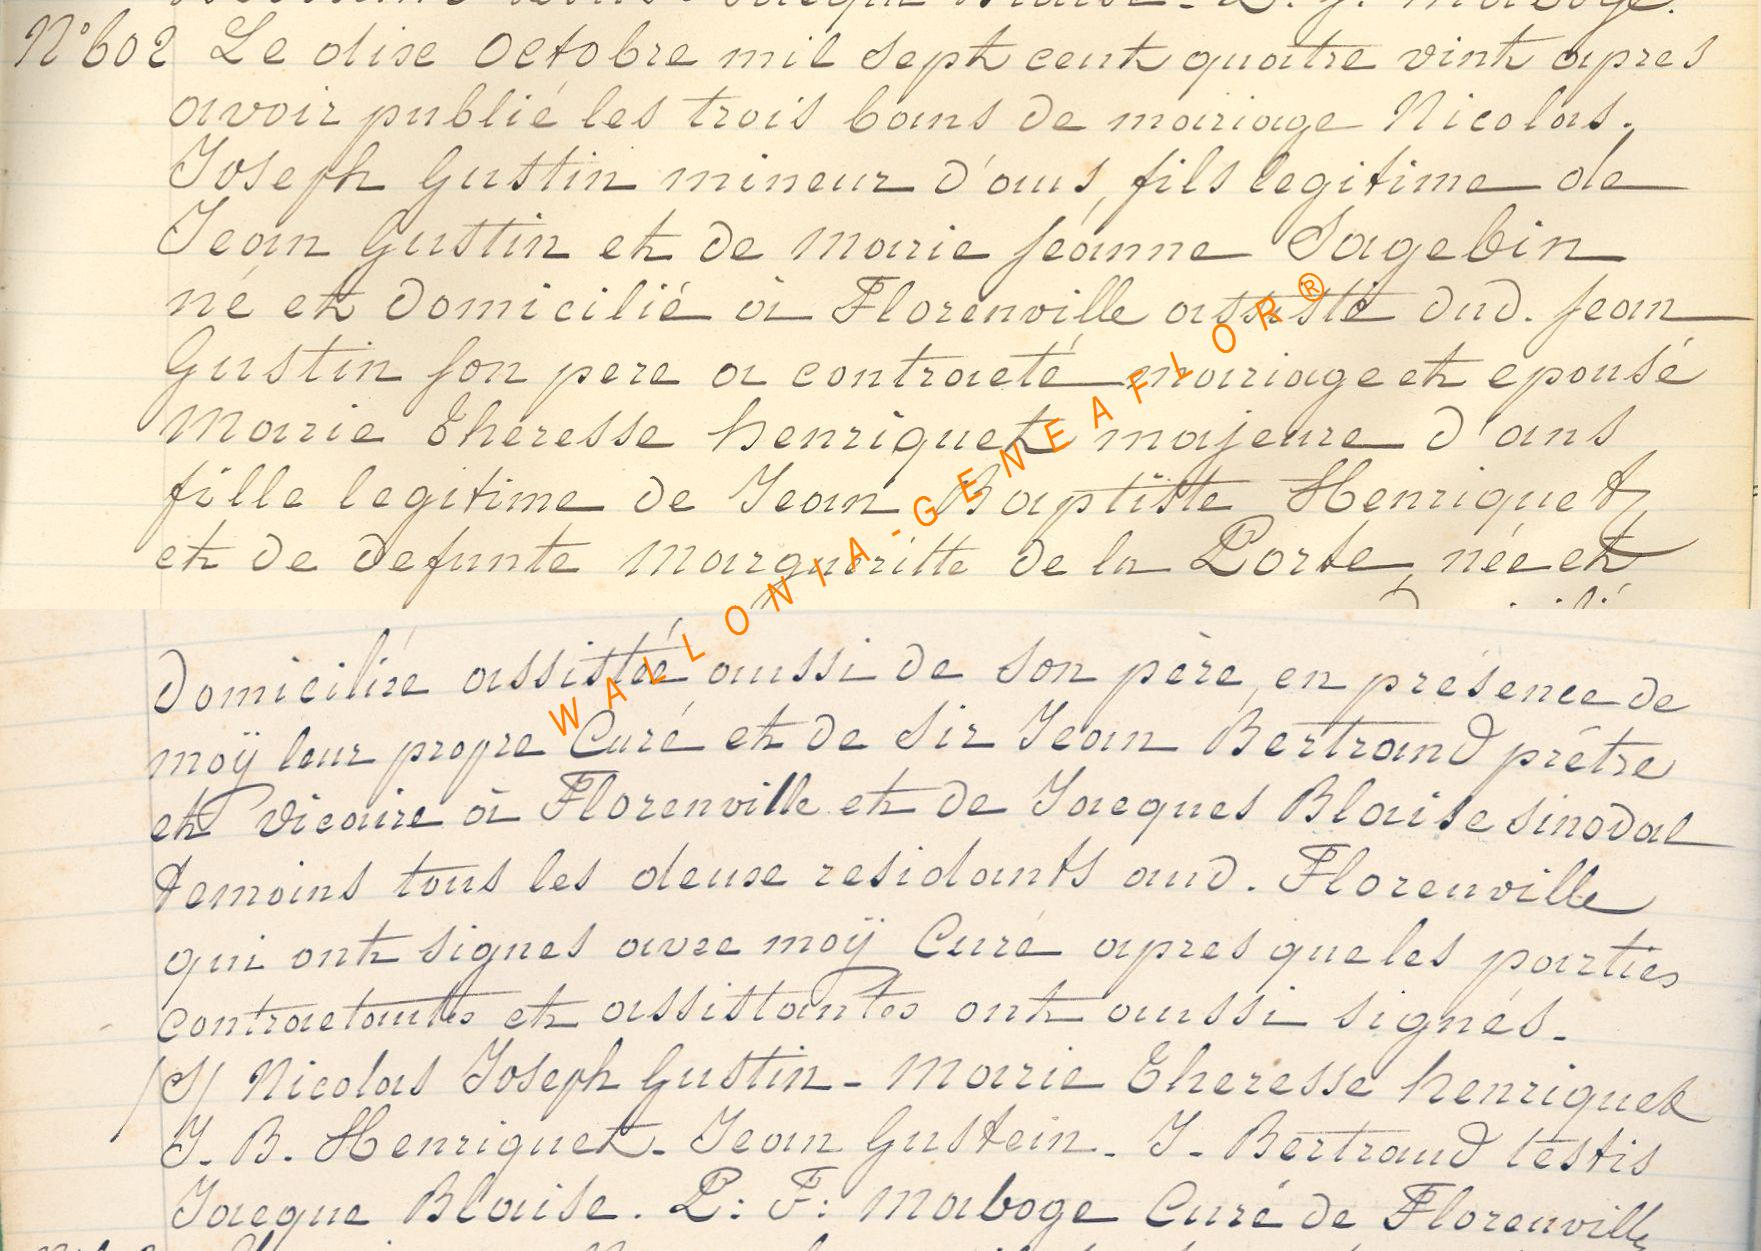 Jacque Blaise - L. J. Maboge.
N°602 Le dixe Octobre mil sept cent quatre vint apres
avoir publié les trois bans de mariage Nicolas.
Joseph Gustin mineur d'ans, fils legitime de
Jean Gustin et de Marie Jeanne Sagebin
né et domicilié à Florenville assisté dud. Jean
Gustin son pere a contracté mariage et epousé
Marie Theresse henriquet majeure d'ans
fille legitime de Jean Baptiste Henriquet
et de defunte Margueritte de la Porte, née et
domiciliée assistée aussi de son père, en présence de
moÿ leur propre Curé et de Sir Jean Bertrand prêtre
et Vicaire à Florenville et de Jacques Blaise sinodal
temoins tous les deuxe residants aud. Florenville
qui ont signes avec moÿ Curé apres que les parties
contractantes et assistantes ont aussi signés.
/S/ Nicolas Joseph Gustin - Marie Theresse henriquet
J. B. Henriquet - Jean Gustein - J. Bertrand testis
Jacque Blaise. L: F: Maboge Curé de Florenville
WALLONIA-GENEAFLOR®